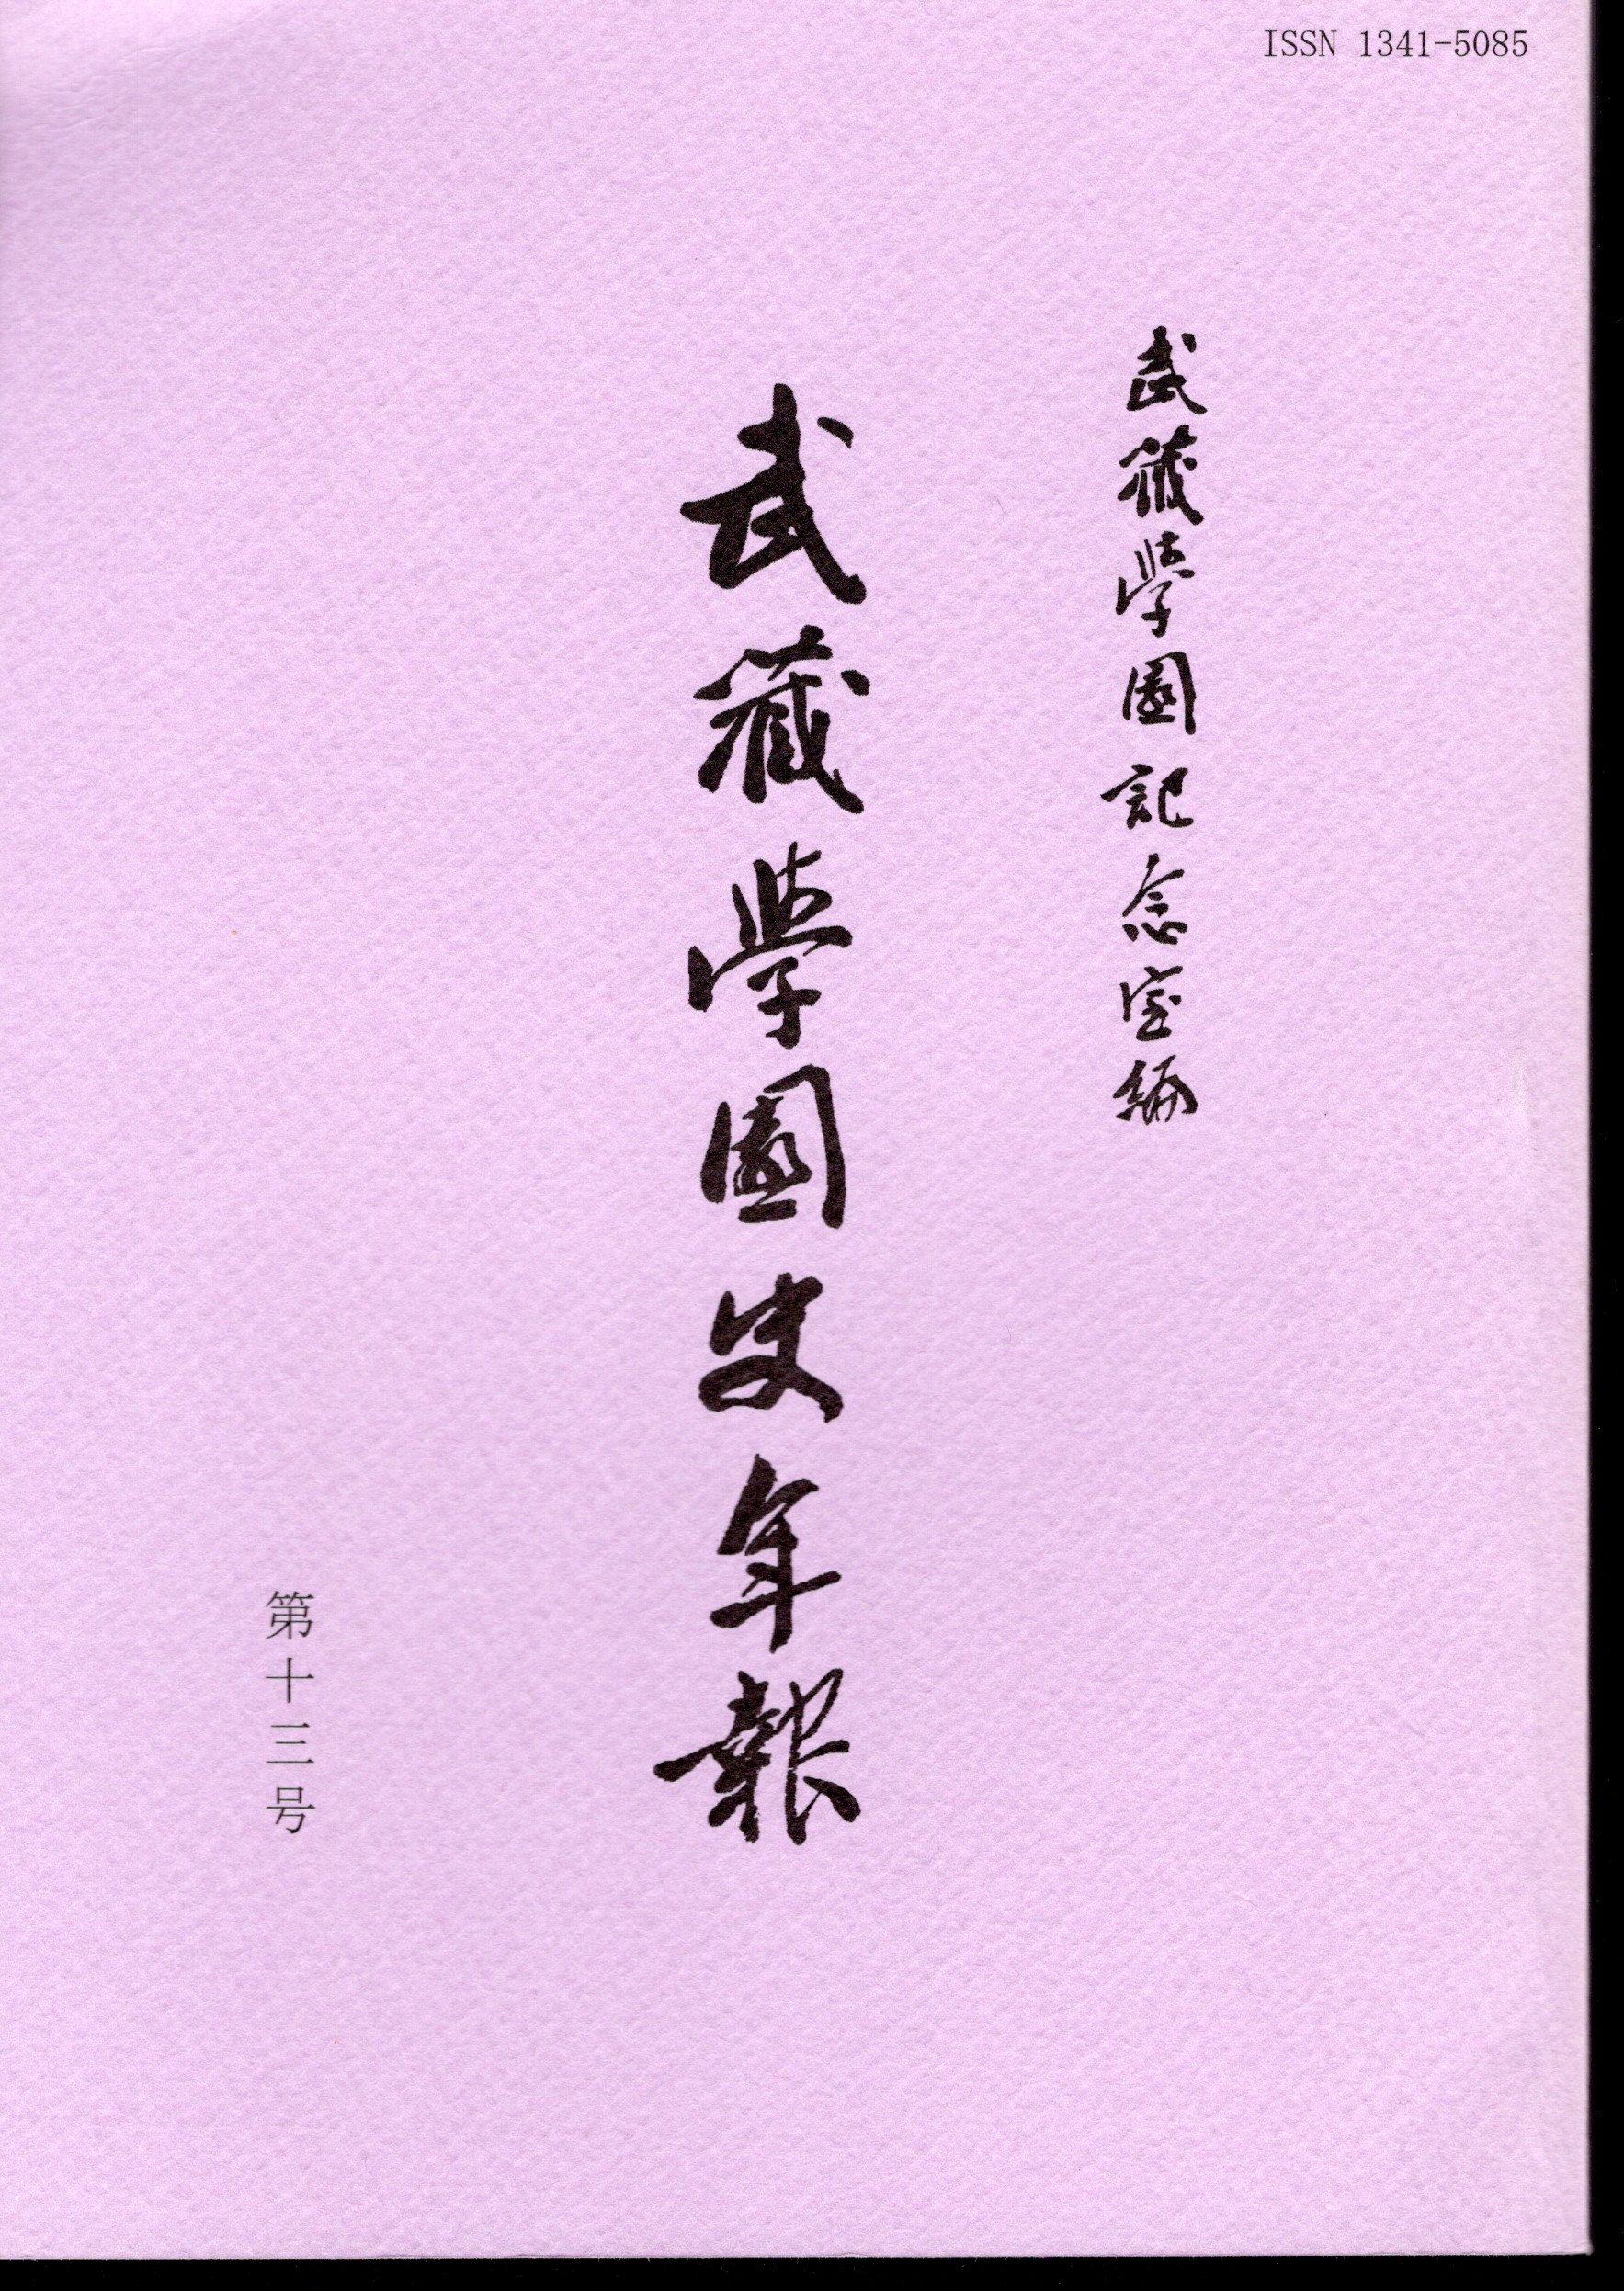 ISSN 1341-5085
武蔵學園記念室編
武藏學園史年報
第十三号